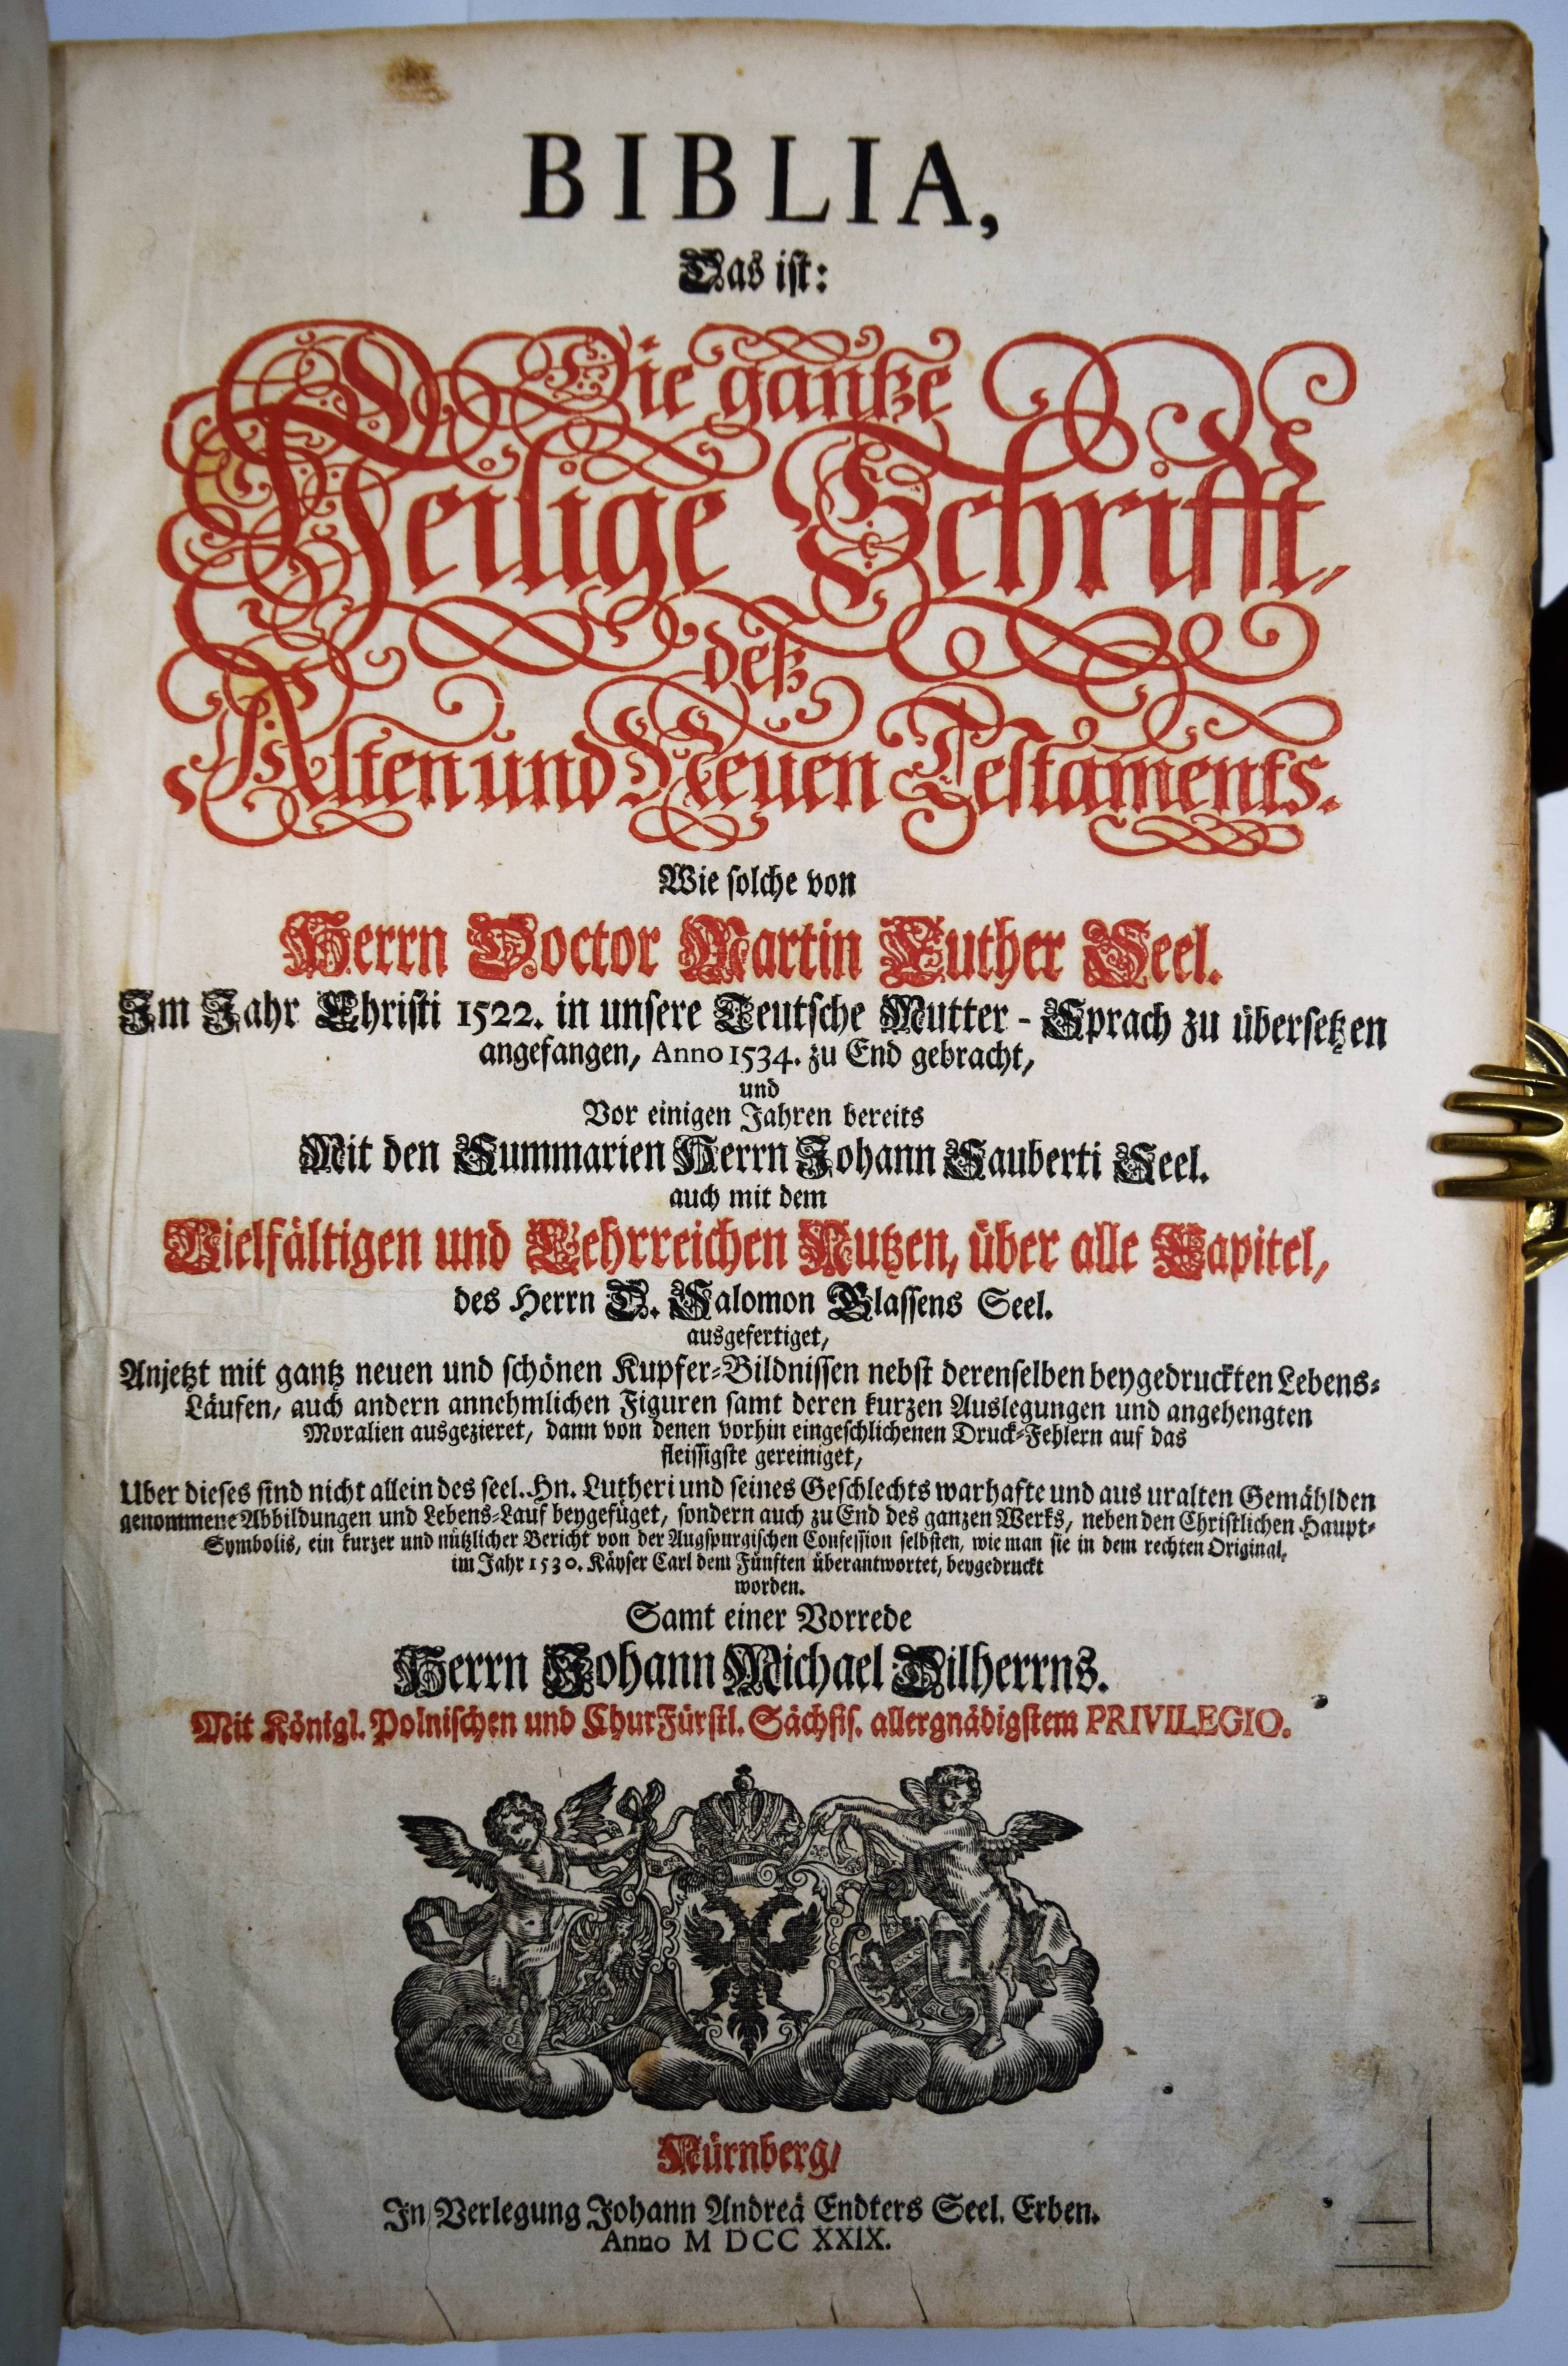 BIBLIA,
Das ist:
Die gantze
Heilige Schrifft,
deß
Alten und Neuen Testaments.
Wie solche von
Herrn Doctor Martin Luther Seel.
Im Jahr Christi 1522. in unsere Teutsche Mutter - Sprach zu übersetzen
angefangen, Anno 1534. zu End gebracht,
und
Vor einigen Jahren bereits
Mit den Summarien Herrn Johann Sauberti Seel.
auch mit dem
Vielfältigen und Lehrreichen Nutzen, über alle Capitel,
des Herrn D. Salomon Glassens Seel.
ausgefertiget,
Anjetzt mit gantz neuen und schönen Kupfer-Bildnissen nebst derenselben beygedruckten Lebens-
Läufen, auch andern annehmlichen Figuren samt deren kurzen Auslegungen und angehengten
Moralien ausgezieret, dann von denen vorhin eingeschlichenen Druck-Fehlern auf das
fleissigste gereiniget,
Uber dieses sind nicht allein des seel. Hn. Lutheri und seines Geschlechts warhafte und aus uralten Gemählden
genommene Abbildungen und Lebens-Lauf beygefüget, sondern auch zu End des ganzen Werks, neben den Christlichen Haupt-
Symbolis, ein kurzer und nützlicher Bericht von der Augspurgischen Confession selbsten, wie man sie in dem rechten Original,
im Jahr 1530. Käyser Carl dem Fünften überantwortet, beygedruckt
worden.
Samt einer Vorrede
Herrn Johann Michael Dilherrns.
Mit Königl. Polnischen und ChurFürstl. Sächsis. allergnädigstem PRIVILEGIO.
Nürnberg/
In Verlegung Johann Andreä Endters Seel. Erben.
Anno M DCC XXIX.